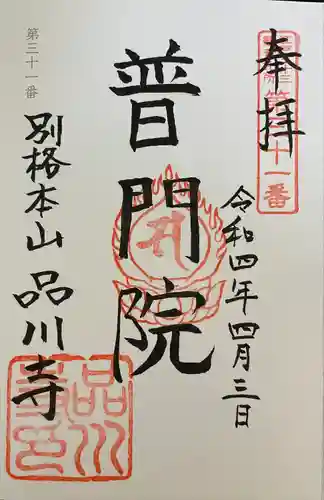 奉拝
第三十一番
令和四年四月三日
普門院
第三十一番
別格本山 品川寺